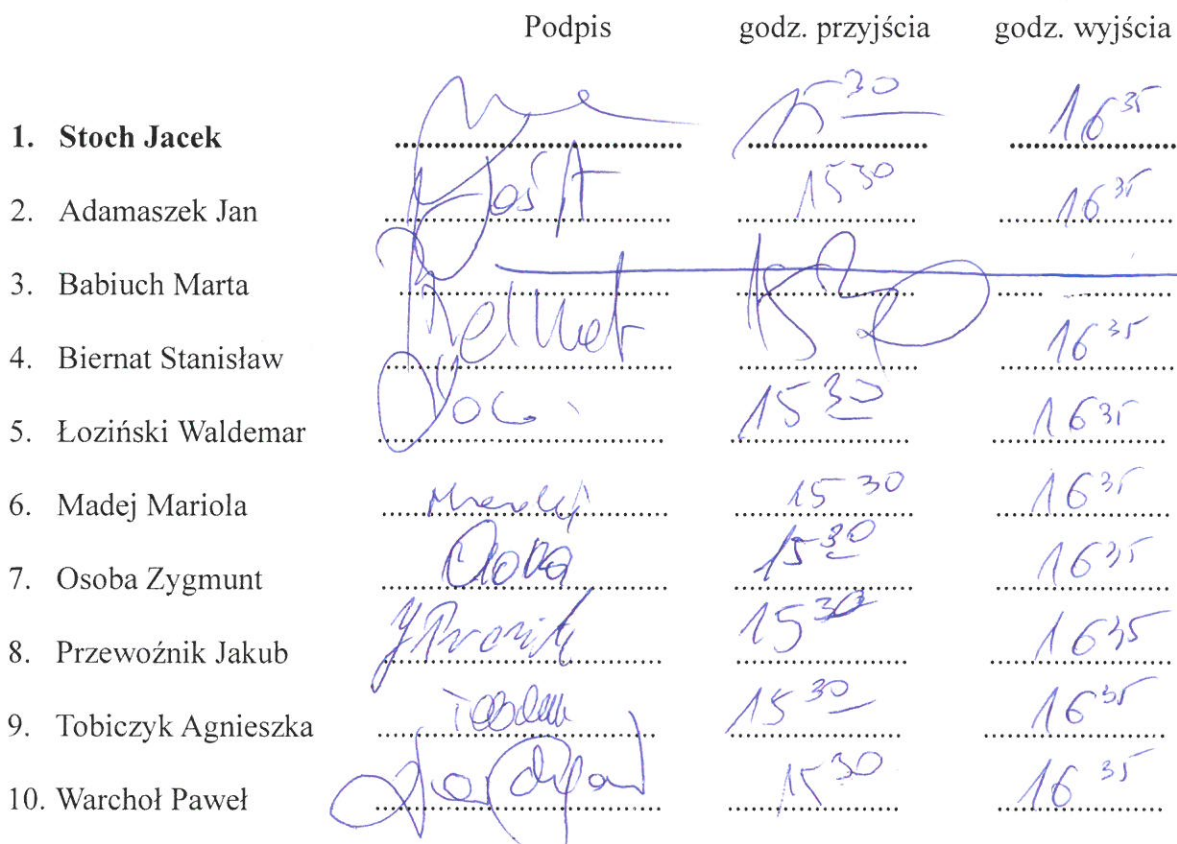 Podpis godz. przyjścia godz. wyjścia
1. Stoch Jacek 15 30 16 35
2. Adamaszek Jan 15 30 16 35
3. Babiuch Marta
4. Biernat Stanisław 16 35
5. Łoziński Waldemar 15 30 16 35
6. Madej Mariola 15 30 16 35
7. Osoba Zygmunt 15 30 16 35
8. Przewoźnik Jakub 15 30 16 35
9. Tobiczyk Agnieszka 15 30 16 35
10. Warchoł Paweł 15 30 16 35